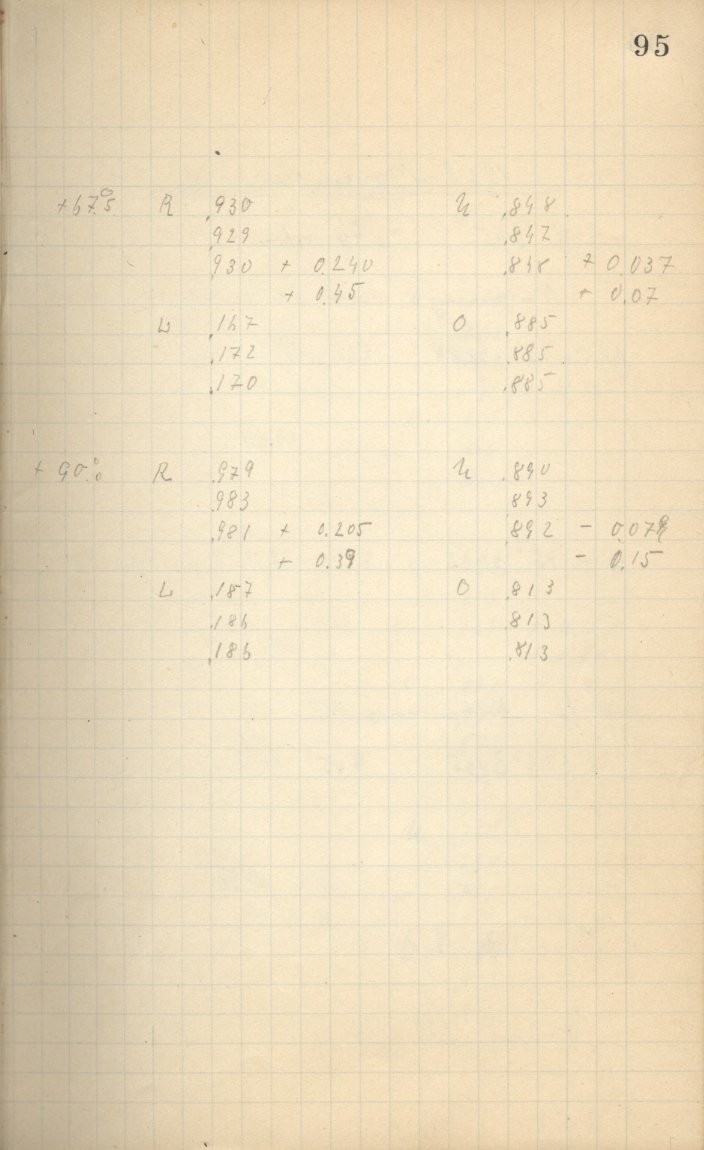 95
+67.5° R .930 U .848
.929 .847
.930 + 0.240 .848 + 0.037
+ 0.45 + 0.07
L .167 O .885
.172 .885
.170 .885
+90.°0 R .979 U .890
.983 .893
.981 + 0.205 .892 - 0.079
+ 0.39 - 0.15
L .187 O .813
.186 .813
.186 .813